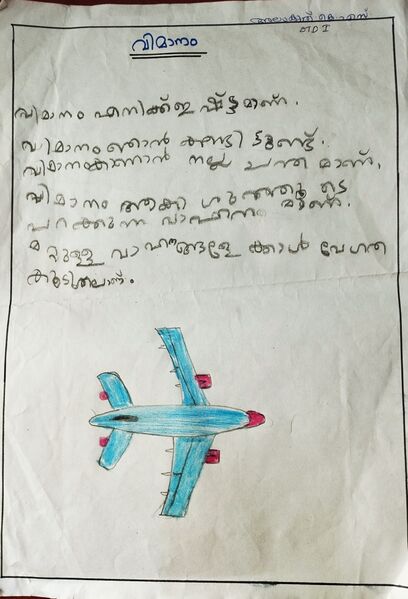 അലംകൃത് കെ എസ്
STD I
വിമാനം
വിമാനം എനിക്ക്ഇ ഷ്ട്ടമാണ്.
വിമാനം ഞാൻ കണ്ടി ട്ടുണ്ട്.
വിമാനംകാണാൻ നല്ല ചന്ത മാണ്.
വിമാനം ആകാ ശത്തുകൂടെ
പറക്കുന്ന വാഹന മാണ്.
മറ്റുള്ള വാഹനങ്ങളേ ക്കാൾ വേഗത
കൂടുതലാണ്.